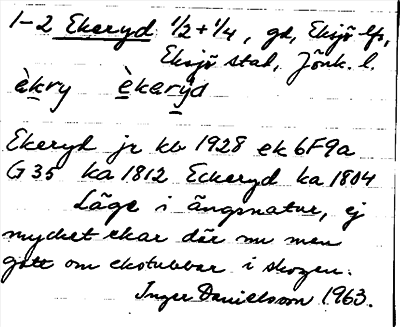 1-2 Ekeryd 1/2 + 1/4, gd, Eksjö lfs,
Eksjö stad, Jönk. l.
èkry èkarỳd
Ekeryd jr kb 1928 ek 6F9a
G 35 ka 1812 Eckeryd ka 1804
Läge i ängsnatur, ej
mycket ekar där nu men
gott om ekstubbar i skogen.
Inger Danielsson 1963.